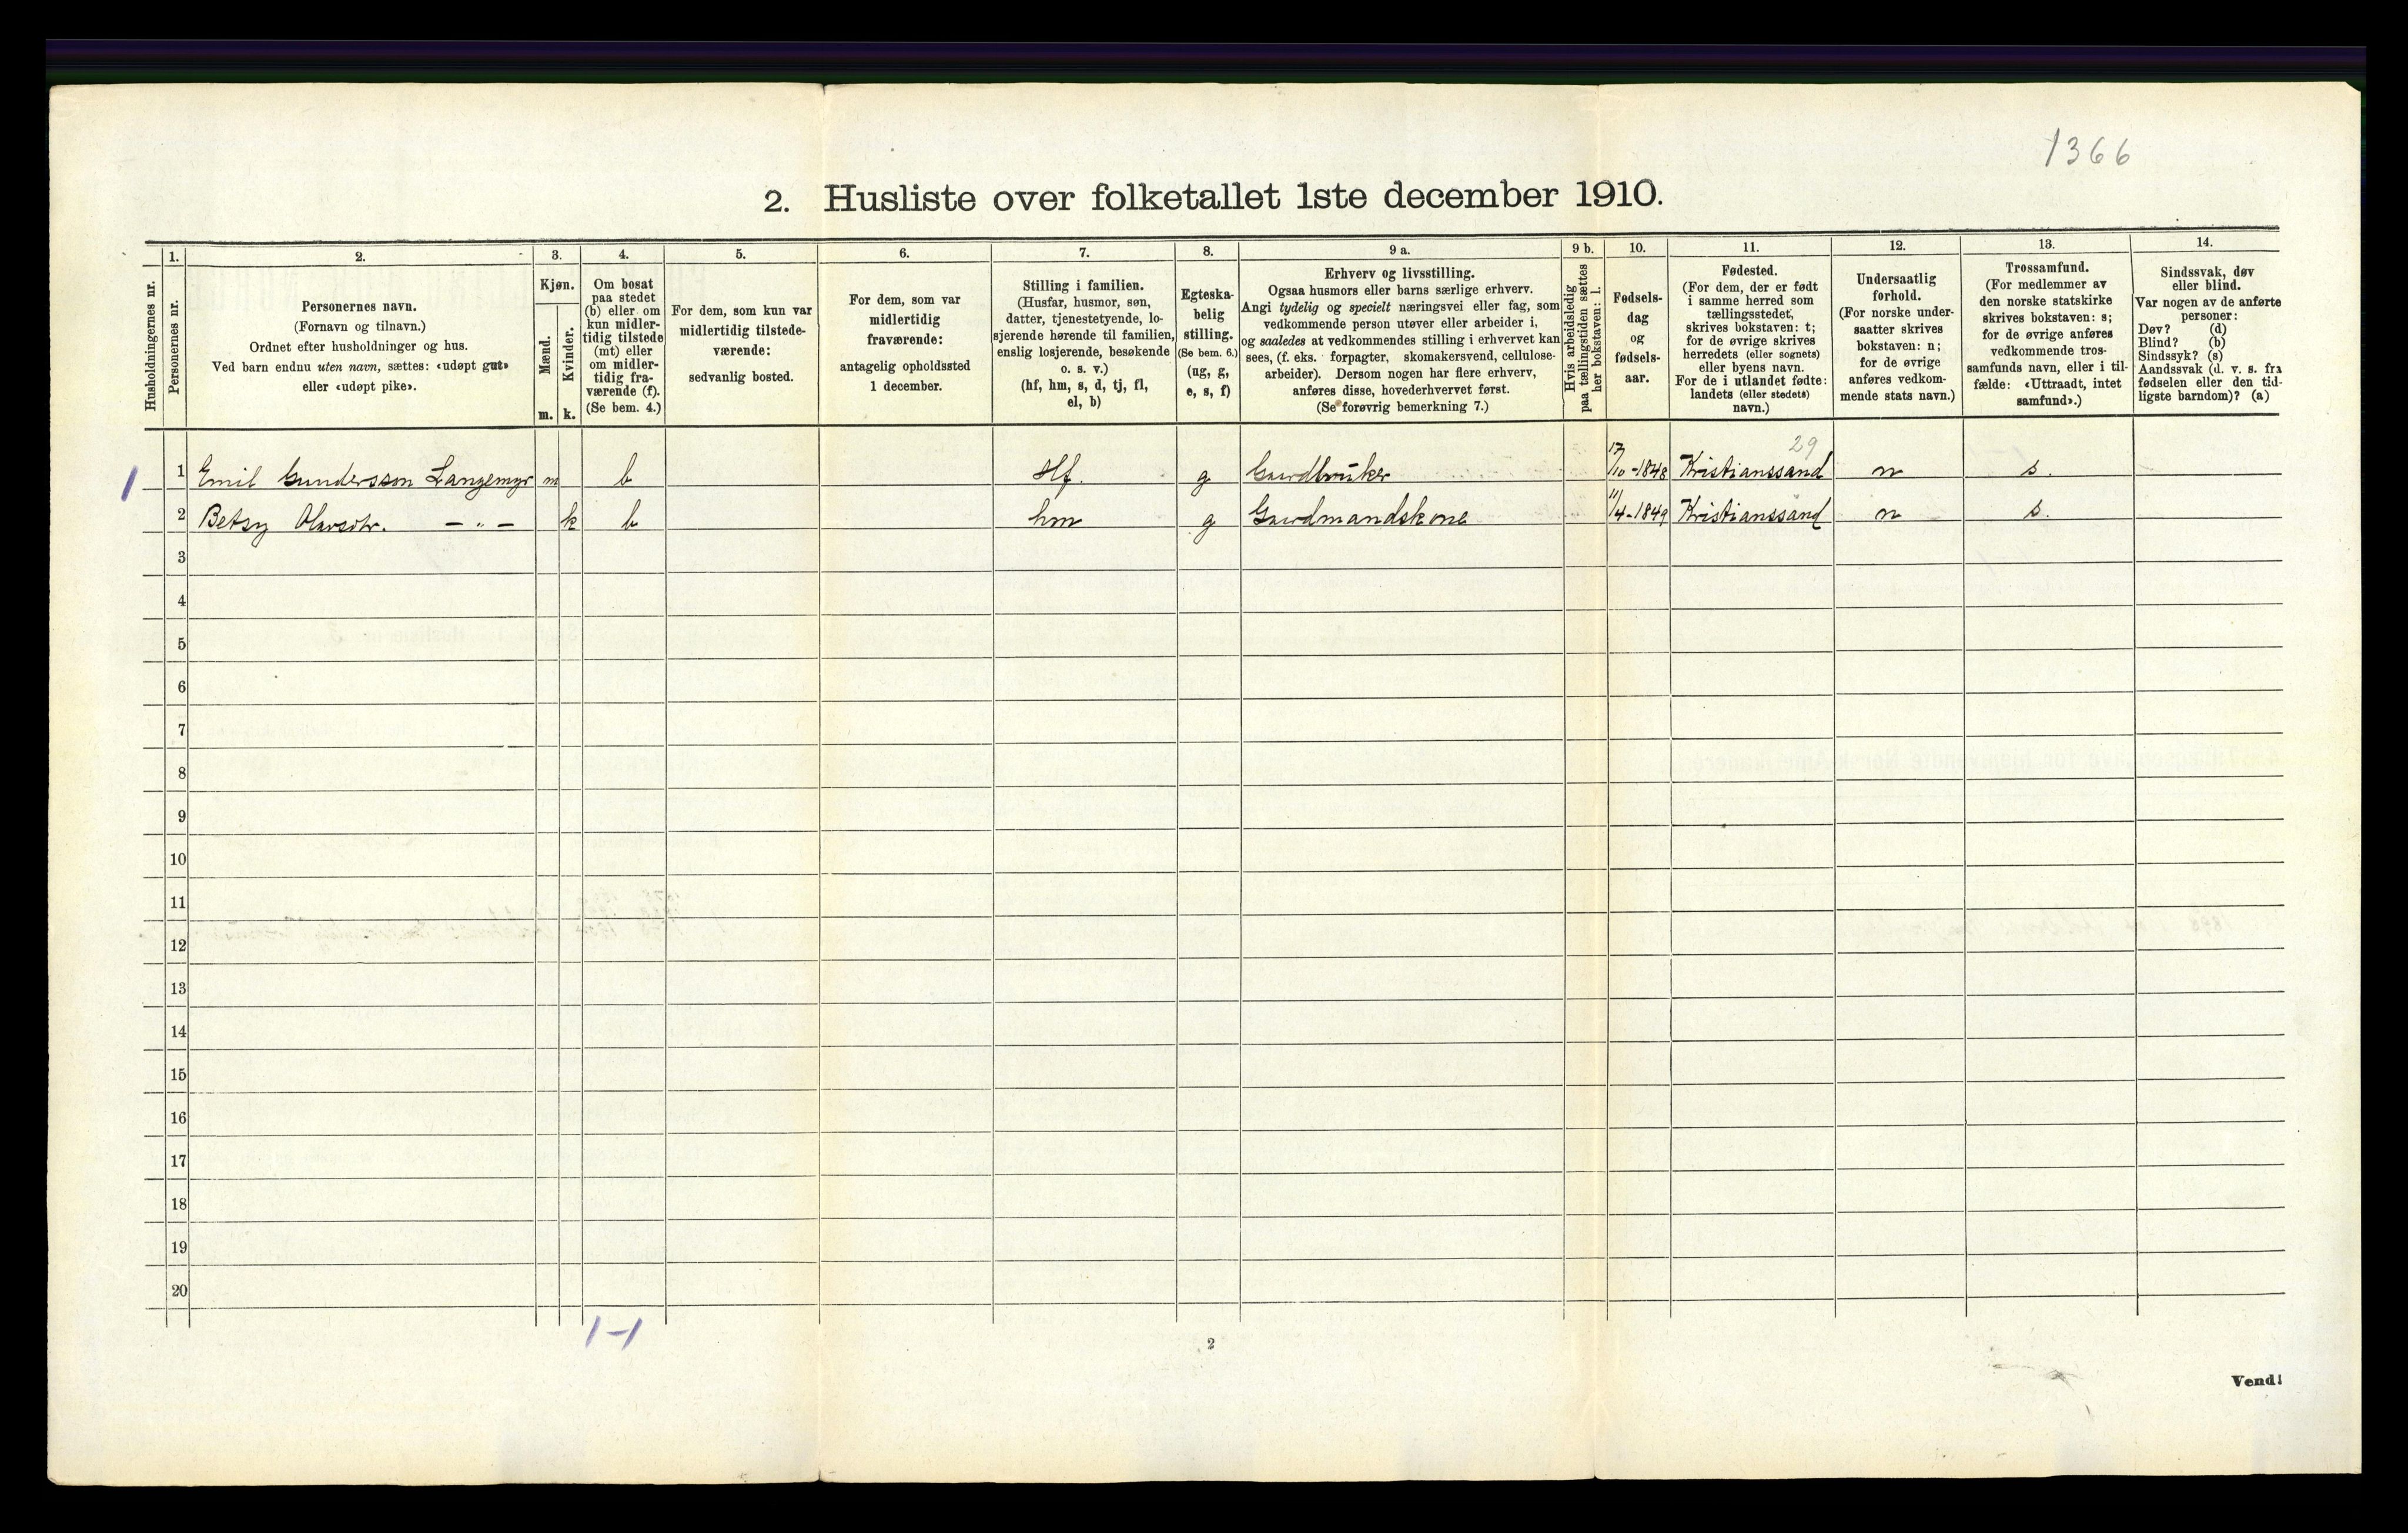 1366
2. Husliste over folketallet 1ste december 1910.
Husholdningernes nr.
1.
Personernes nr.
2.
Personernes navn.
(Fornavn og tilnavn.)
Ordnet efter husholdninger og hus.
Ved barn endnu uten navn, sættes: «udøpt gut»
eller «udøpt pike».
3.
Kjøn.
Mænd.
m.
Kvinder.
k.
4.
Om bosat
paa stedet
(b) eller om
kun midler-
tidig tilstede
(mt) eller
om midler-
tidig fra-
værende (f).
(Se bem. 4.)
5.
For dem, som kun var
midlertidig tilstede-
værende:
sedvanlig bosted.
6.
For dem, som var
midlertidig
fraværende:
antagelig opholdssted
1 december.
7.
Stilling i familien.
(Husfar, husmor, søn,
datter, tjenestetyende, lo-
sjerende hørende til familien,
enslig losjerende, besøkende
o. s. v.)
(hf, hm, s, d, tj, fl,
el, b)
8.
Egteska-
belig
stilling.
(Se bem. 6.)
(ug, g,
e, s, f)
9 a.
Erhverv og livsstilling.
Ogsaa husmors eller barns særlige erhverv.
Angi tydelig og specielt næringsvei eller fag, som
vedkommende person utøver eller arbeider i,
og saaledes at vedkommendes stilling i erhvervet kan
sees, (f. eks. forpagter, skomakersvend, cellulose-
arbeider). Dersom nogen har flere erhverv,
anføres disse, hovederhvervet først.
(Se forøvrig bemerkning 7.)
9 b.
Hvis arbeidsledig
paa tællingstiden sættes
her bokstaven: l.
10.
Fødsels-
dag
og
fødsels-
aar.
11.
Fødested.
(For dem, der er født
i samme herred som
tællingsstedet,
skrives bokstaven: t;
for de øvrige skrives
herredets (eller sognets)
eller byens navn.
For de i utlandet fødte:
landets (eller stedets)
navn.)
12.
Undersaatlig
forhold.
(For norske under-
saatter skrives
bokstaven: n;
for de øvrige
anføres vedkom-
mende stats navn.)
13.
Trossamfund.
(For medlemmer av
den norske statskirke
skrives bokstaven: s;
for de øvrige anføres
vedkommende tros-
samfunds navn, eller i til-
fælde: «Uttraadt, intet
samfund».)
14.
Sindssvak, døv
eller blind.
Var nogen av de anførte
personer:
Døv? (d)
Blind? (b)
Sindssyk? (s)
Aandssvak (d. v. s. fra
fødselen eller den tid-
ligste barndom)? (a)
29
1 1 Emil Gundersson Langemyr m b Hf. g Gardbruker 17/10-1848 Kristianssand n s.
2 Betsy Olavsdtr. — " — k b hm g Gardmandskone 11/4-1849 Kristianssand n s.
3
4
5
6
7
8
9
10
11
12
13
14
15
16
17
18
19
20
1-1
2
Vend!